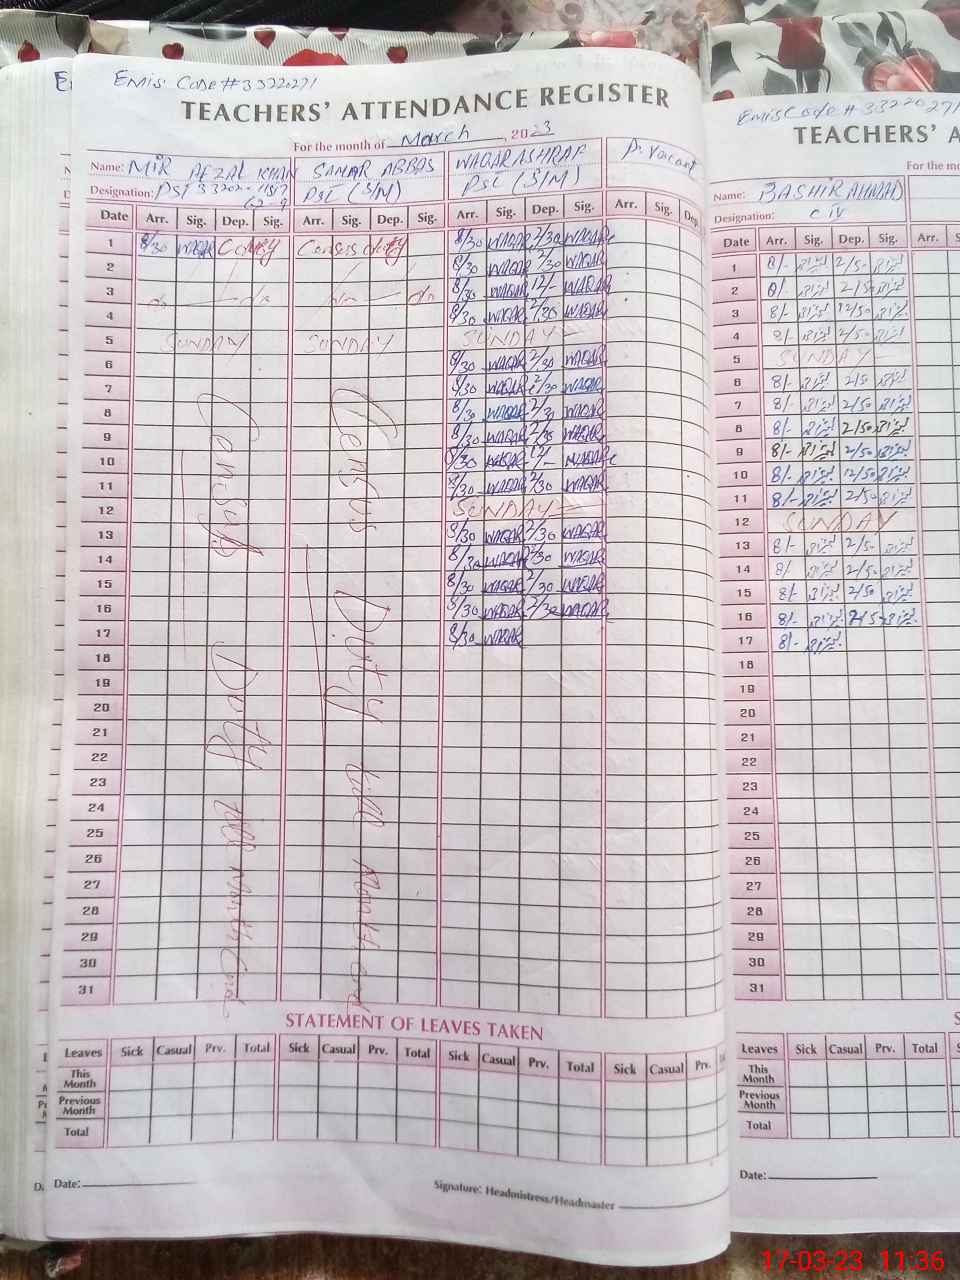 EMIS Code # 33220271
TEACHERS' ATTENDANCE REGISTER
For the month of March, 2023
Name: MIR AFZAL KHAN SAMAR ABBAS WAQAR ASHRAF P. Vacant
Designation: PST PST (S/M) PST (S/M)
Date Arr. Sig. Dep. Sig. Arr. Sig. Dep. Sig. Arr. Sig. Dep. Sig. Arr. Sig. Dep.
1 8/30 WAQAR Census duty 8/30 WAQAR 2/30 WAQAR
2 8/30 WAQAR 2/30 WAQAR
3 do do 8/30 WAQAR 12/- WAQAR
4 8/30 WAQAR 2/30 WAQAR
5 SUNDAY SUNDAY SUNDAY
6 8/30 WAQAR 2/30 WAQAR
7 8/30 WAQAR 2/30 WAQAR
8 8/30 WAQAR 2/30 WAQAR
9 8/30 WAQAR 2/30 WAQAR
10 8/30 WAQAR 12/- WAQAR
11 8/30 WAQAR 2/30 WAQAR
12 SUNDAY
13 8/30 WAQAR 2/30 WAQAR
14 8/30 WAQAR 2/30 WAQAR
15 8/30 WAQAR 2/30 WAQAR
16 8/30 WAQAR 2/30 WAQAR
17 8/30 WAQAR
18
19
20
21
22
23
24
25
26
27
28
29
30
31
Census Duty till month end
Census Duty till month end
STATEMENT OF LEAVES TAKEN
Leaves Sick Casual Prv. Total Sick Casual Prv. Total Sick Casual Prv. Total Sick Casual Prv.
This Month
Previous Month
Total
Date:
Signature: Headmistress/Headmaster
EMIS Code # 3322027
TEACHERS' A
For the mo
Name: BASHIR AHMAD
Designation: C IV
Date Arr. Sig. Dep. Sig. Arr. S
1 8/- 2/50
2 8/- 2/50
3 8/- 12/50
4 8/- 2/50
5 SUNDAY
6 8/- 2/50
7 8/- 2/50
8 8/- 2/50
9 8/- 2/50
10 8/- 12/50
11 8/- 2/50
12 SUNDAY
13 8/- 2/50
14 8/- 2/50
15 8/- 2/50
16 8/- 2/50
17 8/-
18
19
20
21
22
23
24
25
26
27
28
29
30
31
Leaves Sick Casual Prv. Total
This Month
Previous Month
Total
Date:
17-03-23 11:36